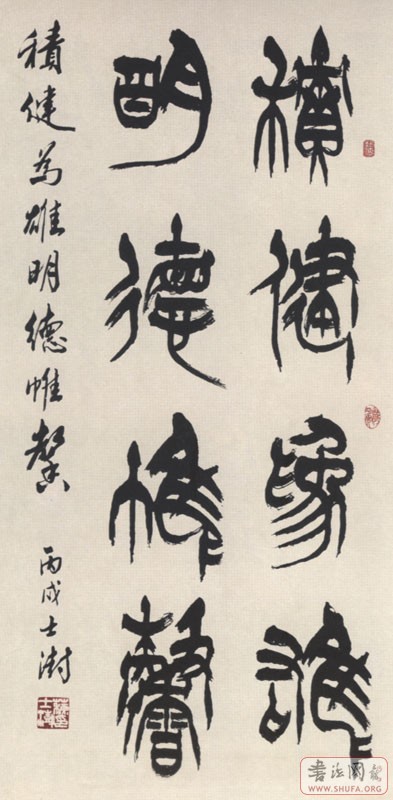 積健為雄
明德惟馨
積健為雄明德惟馨 丙戌士澍
WWW.SHUFA.ORG